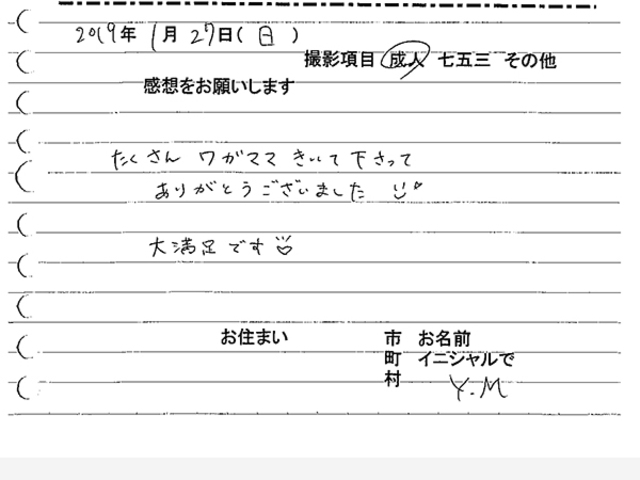 2019年 1月 27日(日)
撮影項目 成人 七五三 その他
感想をお願いします
たくさん ワガママ きいて下さって
ありがとうございました
大満足です
お住まい 市 お名前
町 イニシャルで
村 Y.M